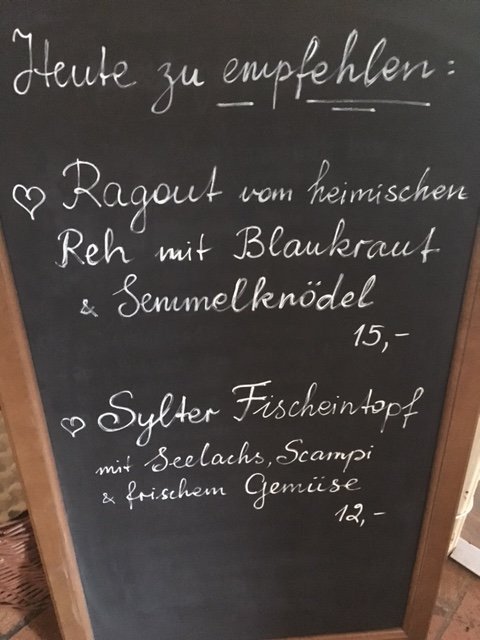 Heute zu empfehlen:
Ragout vom heimischen
Reh mit Blaukraut
& Semmelknödel
15,-
Sylter Fischeintopf
mit Seelachs, Scampi
& frischem Gemüse
12,-